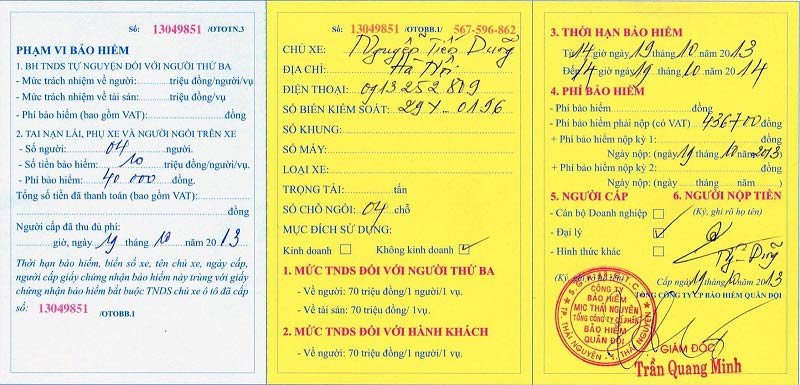 Số: 13049851 /OTOTN.3
PHẠM VI BẢO HIỂM
1. BH TNDS TỰ NGUYỆN ĐỐI VỚI NGƯỜI THỨ BA
- Mức trách nhiệm về người:..........triệu đồng/người/vụ
- Mức trách nhiệm về tài sản:..........triệu đồng/vụ
- Phí bảo hiểm (bao gồm VAT):....................đồng
2. TAI NẠN LÁI, PHỤ XE VÀ NGƯỜI NGỒI TRÊN XE
- Số người: 04 người.
- Số tiền bảo hiểm: 10 triệu đồng/người/vụ.
- Phí bảo hiểm: 40 000 đồng.
Tổng số tiền đã thanh toán (bao gồm VAT):..........
....................đồng
Người cấp đã thu đủ phí:
giờ, ngày 19 tháng 10 năm 2013
Thời hạn bảo hiểm, biển số xe, tên chủ xe, ngày cấp,
người cấp giấy chứng nhận bảo hiểm này trùng với giấy
chứng nhận bảo hiểm bắt buộc TNDS chủ xe ô tô đã cấp
số: 13049851 /OTOBB.1
Số: 13049851 /OTOBB.1/ 567-596-862
CHỦ XE: Nguyễn Tiến Dũng
ĐỊA CHỈ: Hà Nội
ĐIỆN THOẠI: 0913252809
SỐ BIỂN KIỂM SOÁT: 29Y-0196
SỐ KHUNG:
SỐ MÁY:
LOẠI XE:
TRỌNG TẢI:..........tấn
SỐ CHỖ NGỒI: 04 chỗ
MỤC ĐÍCH SỬ DỤNG:
Kinh doanh ☐ Không kinh doanh ☑
1. MỨC TNDS ĐỐI VỚI NGƯỜI THỨ BA
- Về người: 70 triệu đồng/1 người/1 vụ.
- Về tài sản: 70 triệu đồng/ 1vụ.
2. MỨC TNDS ĐỐI VỚI HÀNH KHÁCH
- Về người: 70 triệu đồng/1 người/1 vụ.
3. THỜI HẠN BẢO HIỂM
Từ 14 giờ ngày 19 tháng 10 năm 2013
Đến 14 giờ ngày 19 tháng 10 năm 2014
4. PHÍ BẢO HIỂM
- Phí bảo hiểm....................đồng
- Phí bảo hiểm phải nộp (có VAT) 436700 đồng
+ Phí bảo hiểm nộp kỳ 1:..........đồng
Ngày nộp: (ngày 19 tháng 10 năm 2013)
+ Phí bảo hiểm nộp kỳ 2:..........đồng
Ngày nộp: (ngày.....tháng.....năm.....)
5. NGƯỜI CẤP
- Cán bộ Doanh nghiệp ☐
- Đại lý ☑
- Hình thức khác ☐
6. NGƯỜI NỘP TIỀN
(Ký, ghi rõ họ tên)
Dũng
Cấp ngày 19/10/2013
TỔNG CÔNG TY CP BẢO HIỂM QUÂN ĐỘI
CÔNG TY
BẢO HIỂM
MIC THÁI NGUYÊN
TỔNG CÔNG TY CỔ PHẦN
BẢO HIỂM
QUÂN ĐỘI
TP. THÁI NGUYÊN - T. THÁI NGUYÊN
GIÁM ĐỐC
Trần Quang Minh